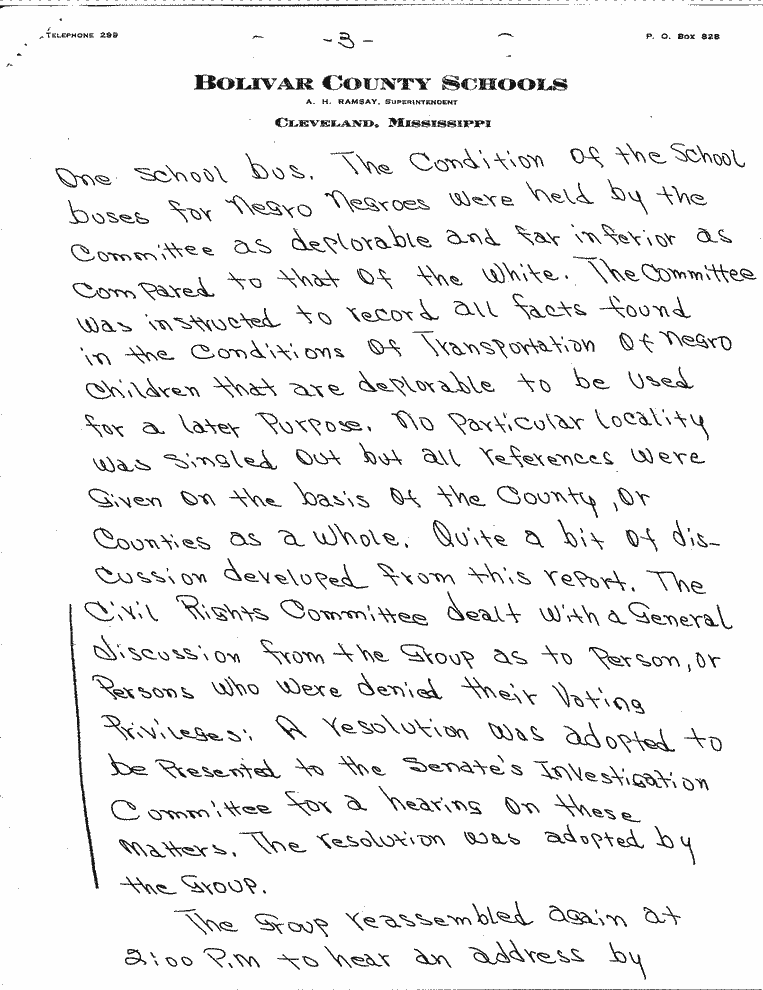 TELEPHONE 299
-3-
P. O. BOX 828
BOLIVAR COUNTY SCHOOLS
A. H. RAMSAY, SUPERINTENDENT
CLEVELAND, MISSISSIPPI
One school bus. The Condition of the School
buses for Negro Negroes were held by the
Committee as deplorable and far inferior as
Compared to that of the White. The Committee
was instructed to record all facts found
in the Conditions of Transportation of Negro
Children that are deplorable to be used
for a later Purpose. No Particular locality
was singled out but all references were
Given on the basis of the County, or
Counties as a whole. Quite a bit of dis-
cussion developed from this report. The
Civil Rights Committee dealt with a General
discussion from the Group as to Person, or
Persons who were denied their Voting
Privileges; A resolution was adopted to
be Presented to the Senate's Investigation
Committee for a hearing on these
Matters. The resolution was adopted by
the Group.
The Group reassembled again at
2:00 P.M to hear an address by